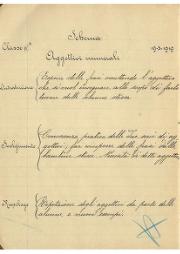 Schema
Classe IIª 19-3-1919
Aggettivi numerali
Esporre delle frasi omettendo l'aggettivo
che si vuol insegnare nella regola di farlo
trovare dalle alunne stesse.
Introduzione
Conoscenza pratica delle varie specie di ag
gettivi; far comporre delle frasi dalle
bambine stesse. Raccolta di detti aggettivi
Svolgimento
Riepilogo
Ripetizione degli aggettivi da parte delle
alunne, e nuovi esempi.